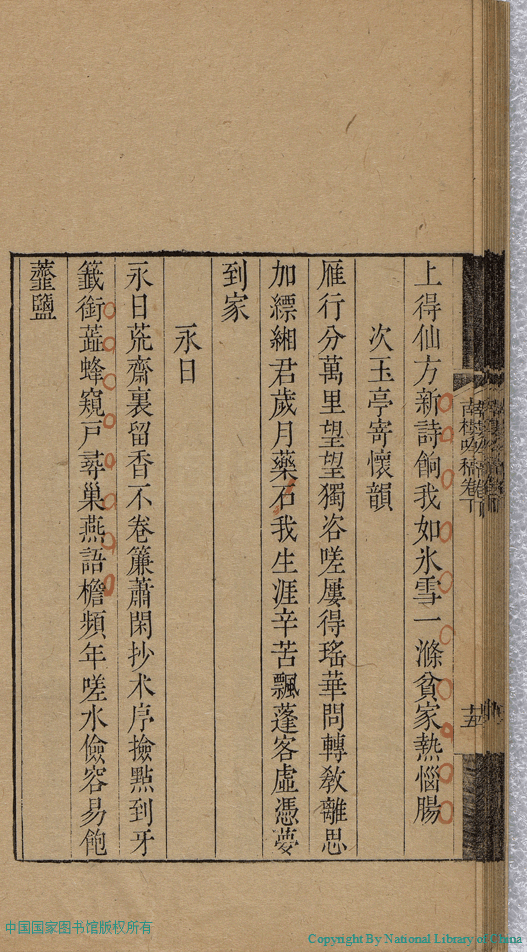 上得仙方新詩餉我如氷雪一滌貧家熱惱腸
次玉亭寄懷韻
雁行分萬里望望獨咨嗟屢得瑤華問轉敎離思
加縹緗君歲月藥石我生涯辛苦飄蓬客虛憑夢
到家
永日
永日荒齋裏留香不卷簾蕭閑抄朮序撿點到牙
籤銜蕋蜂窺戶尋巢燕語檐頻年嗟水儉容易飽
虀鹽
吟稿卷
十五
中国国家图书馆版权所有
Copyright By National Library of China